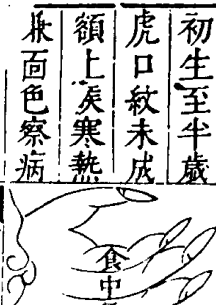 初生至半歲
虎口紋未成
額上寒熱
面色察病
食中